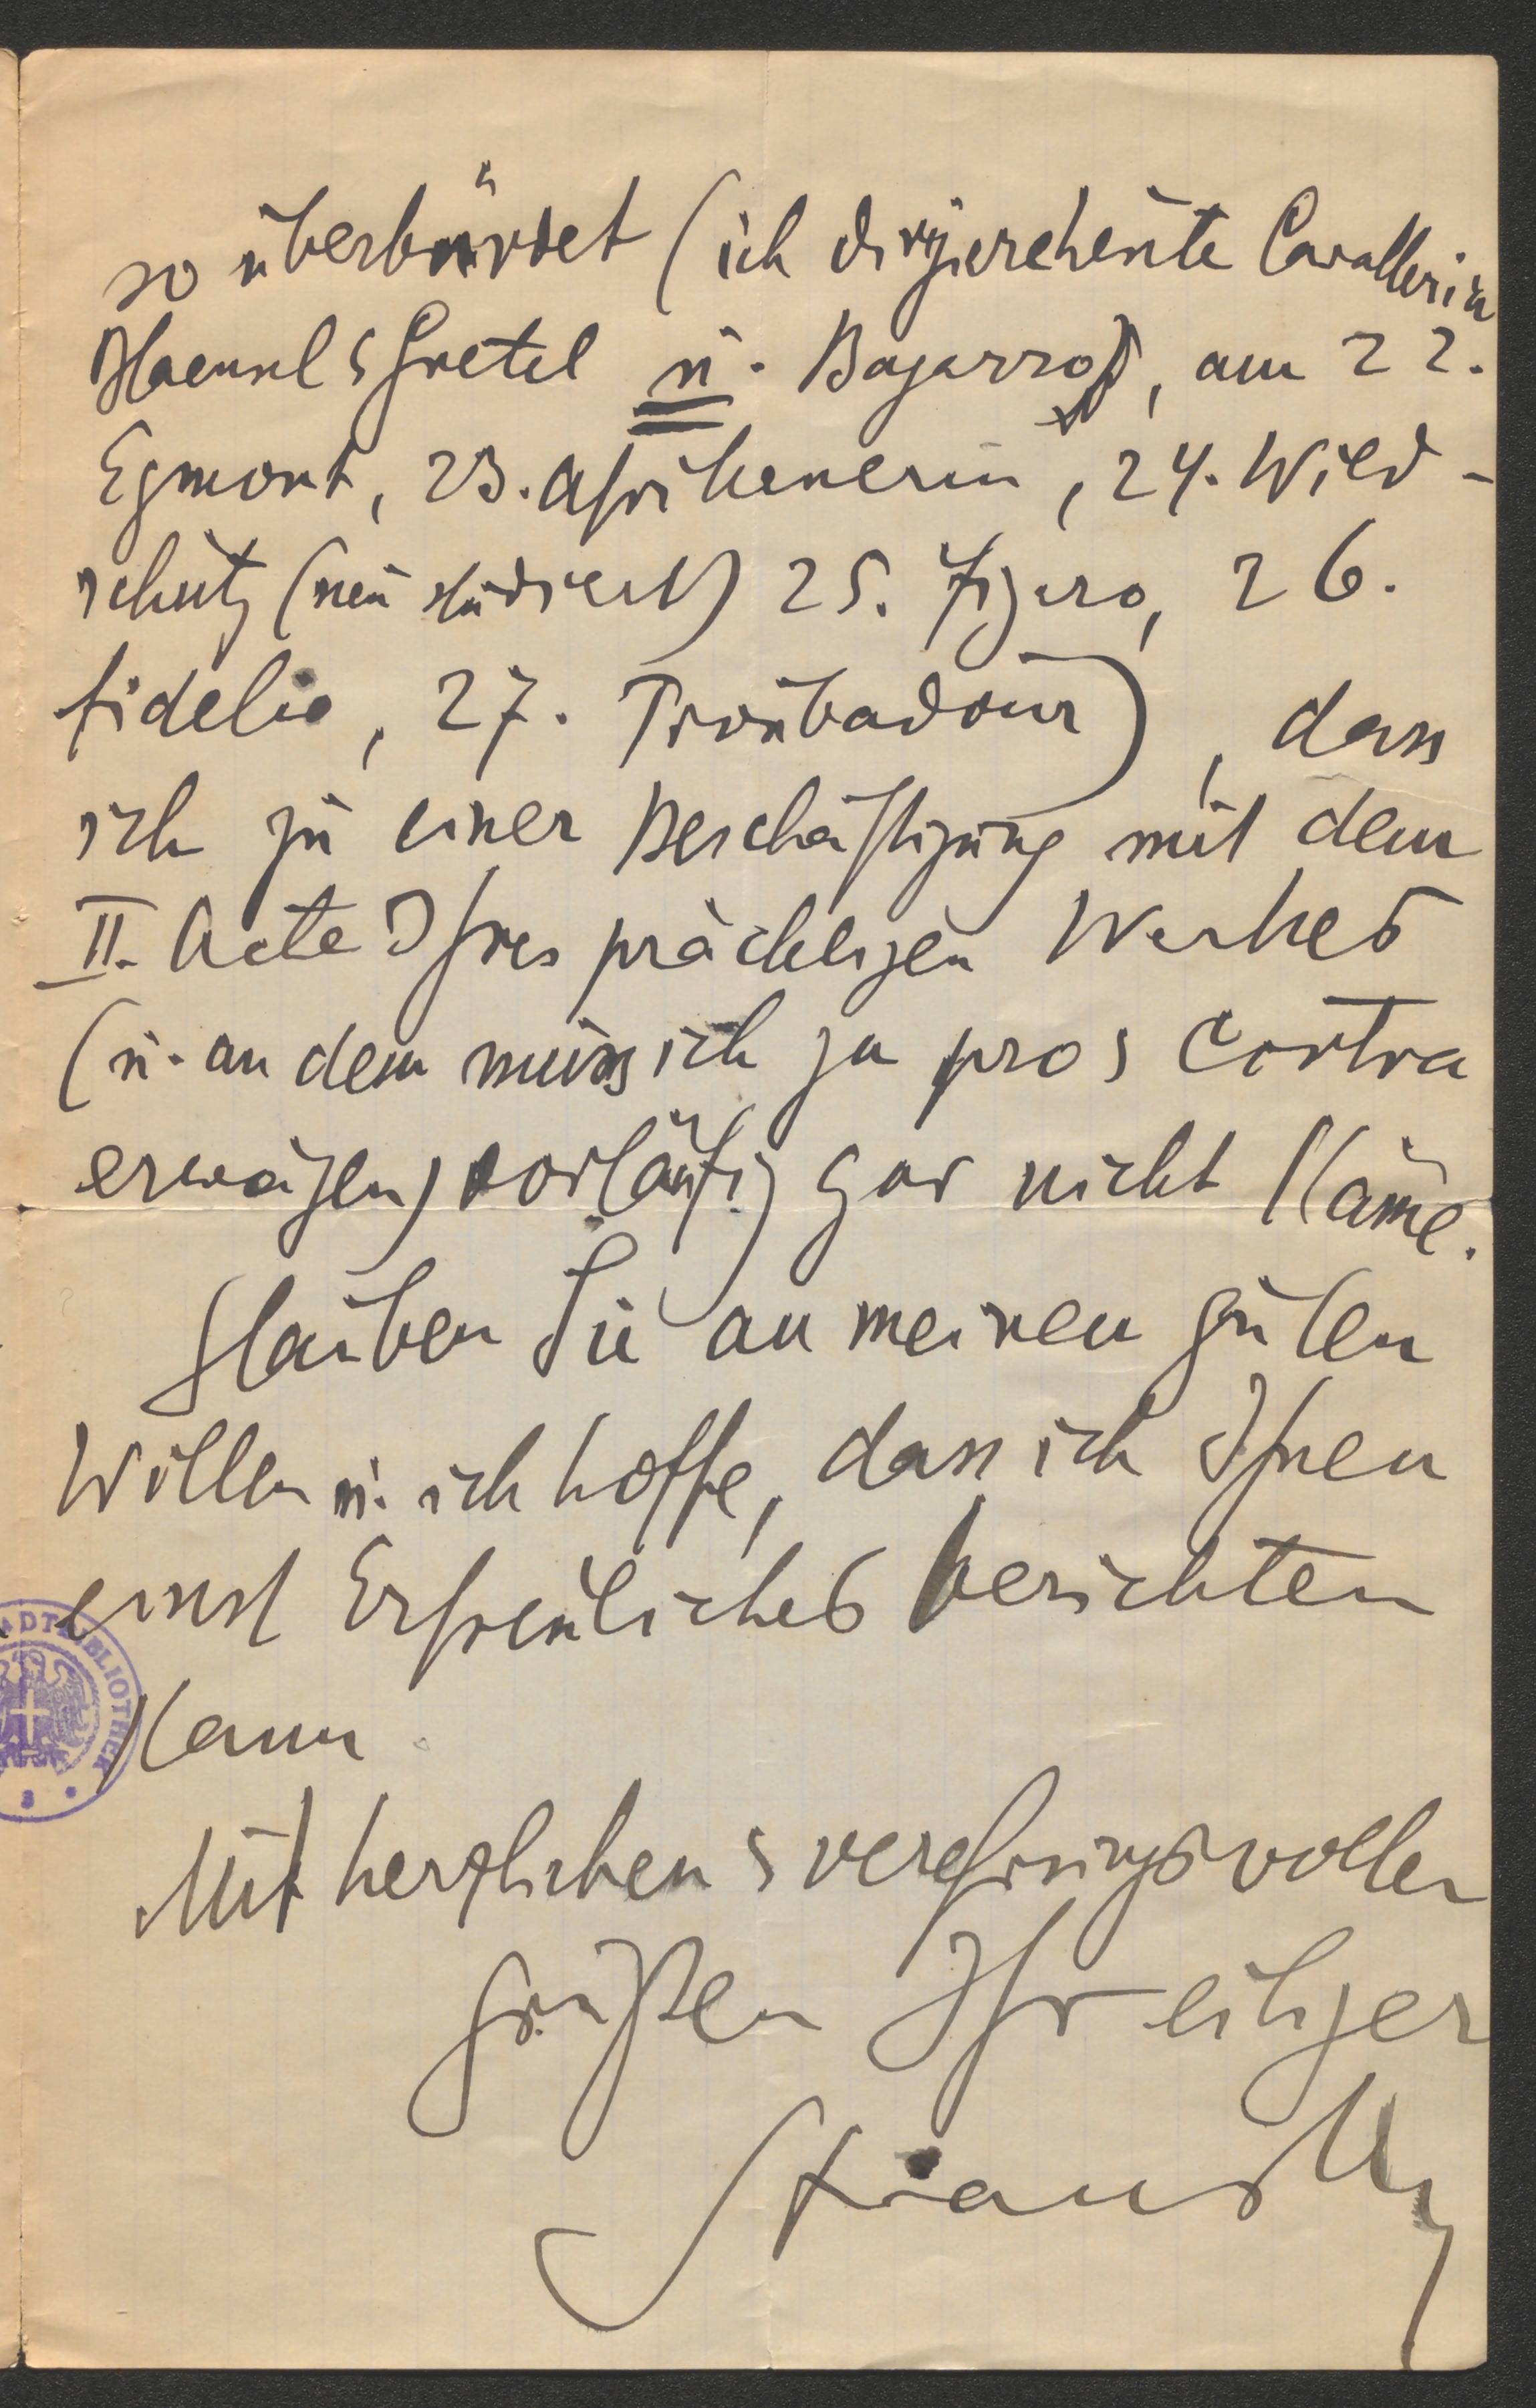 so überbürdet (ich dirigiere heute Cavalleria
Haensel & Gretel u. Bajazzo), am 22.
Egmont, 23. Afrikanerin, 24. Wild-
schütz (neu studiert) 25. Figaro, 26.
Fidelio, 27. Troubadour), dass
ich zu einer Beschäftigung mit dem
II. Acte Ihres prächtigen Werkes
(u. an dem muss ich ja pro & contra
erwägen) vorläufig gar nicht käme.
Glauben Sie an meinen guten
Willen u. ich hoffe, dass ich Ihnen
einst Erfreuliches berichten
kann.
Mit herzlichen & verehrungsvollen
Grüßen Ihr eiliger
Stransky
STADTBIBLIOTHEK